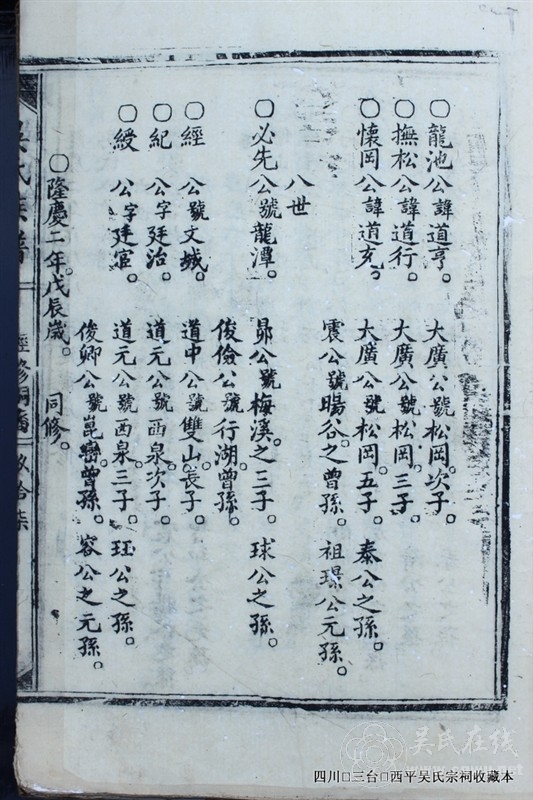 〇龍池公諱道亨。 大廣公號松岡次子。
〇撫松公諱道行。 大廣公號松岡。三子。
〇懷岡公諱道充。 大廣公號松岡。五子。 泰公之孫。
震公號暘谷之曾孫。 祖璟公元孫。
八世
〇必先公號龍潭。 昴公號梅溪。之三子。 球公之孫。
俊儉公號行湖曾孫。
〇經 公號文城。 道中公號雙山。長子。
〇紀 公字廷治。 道元公號西泉次子。
〇綬 公字廷宦。 道元公號西泉。三子。 珏公之孫。
俊卿公號崑巒曾孫。 容公之元孫。
〇隆慶二年。戊辰歲。 同修。
吳氏族譜
吴氏在线
四川□三台□西平吴氏宗祠收藏本